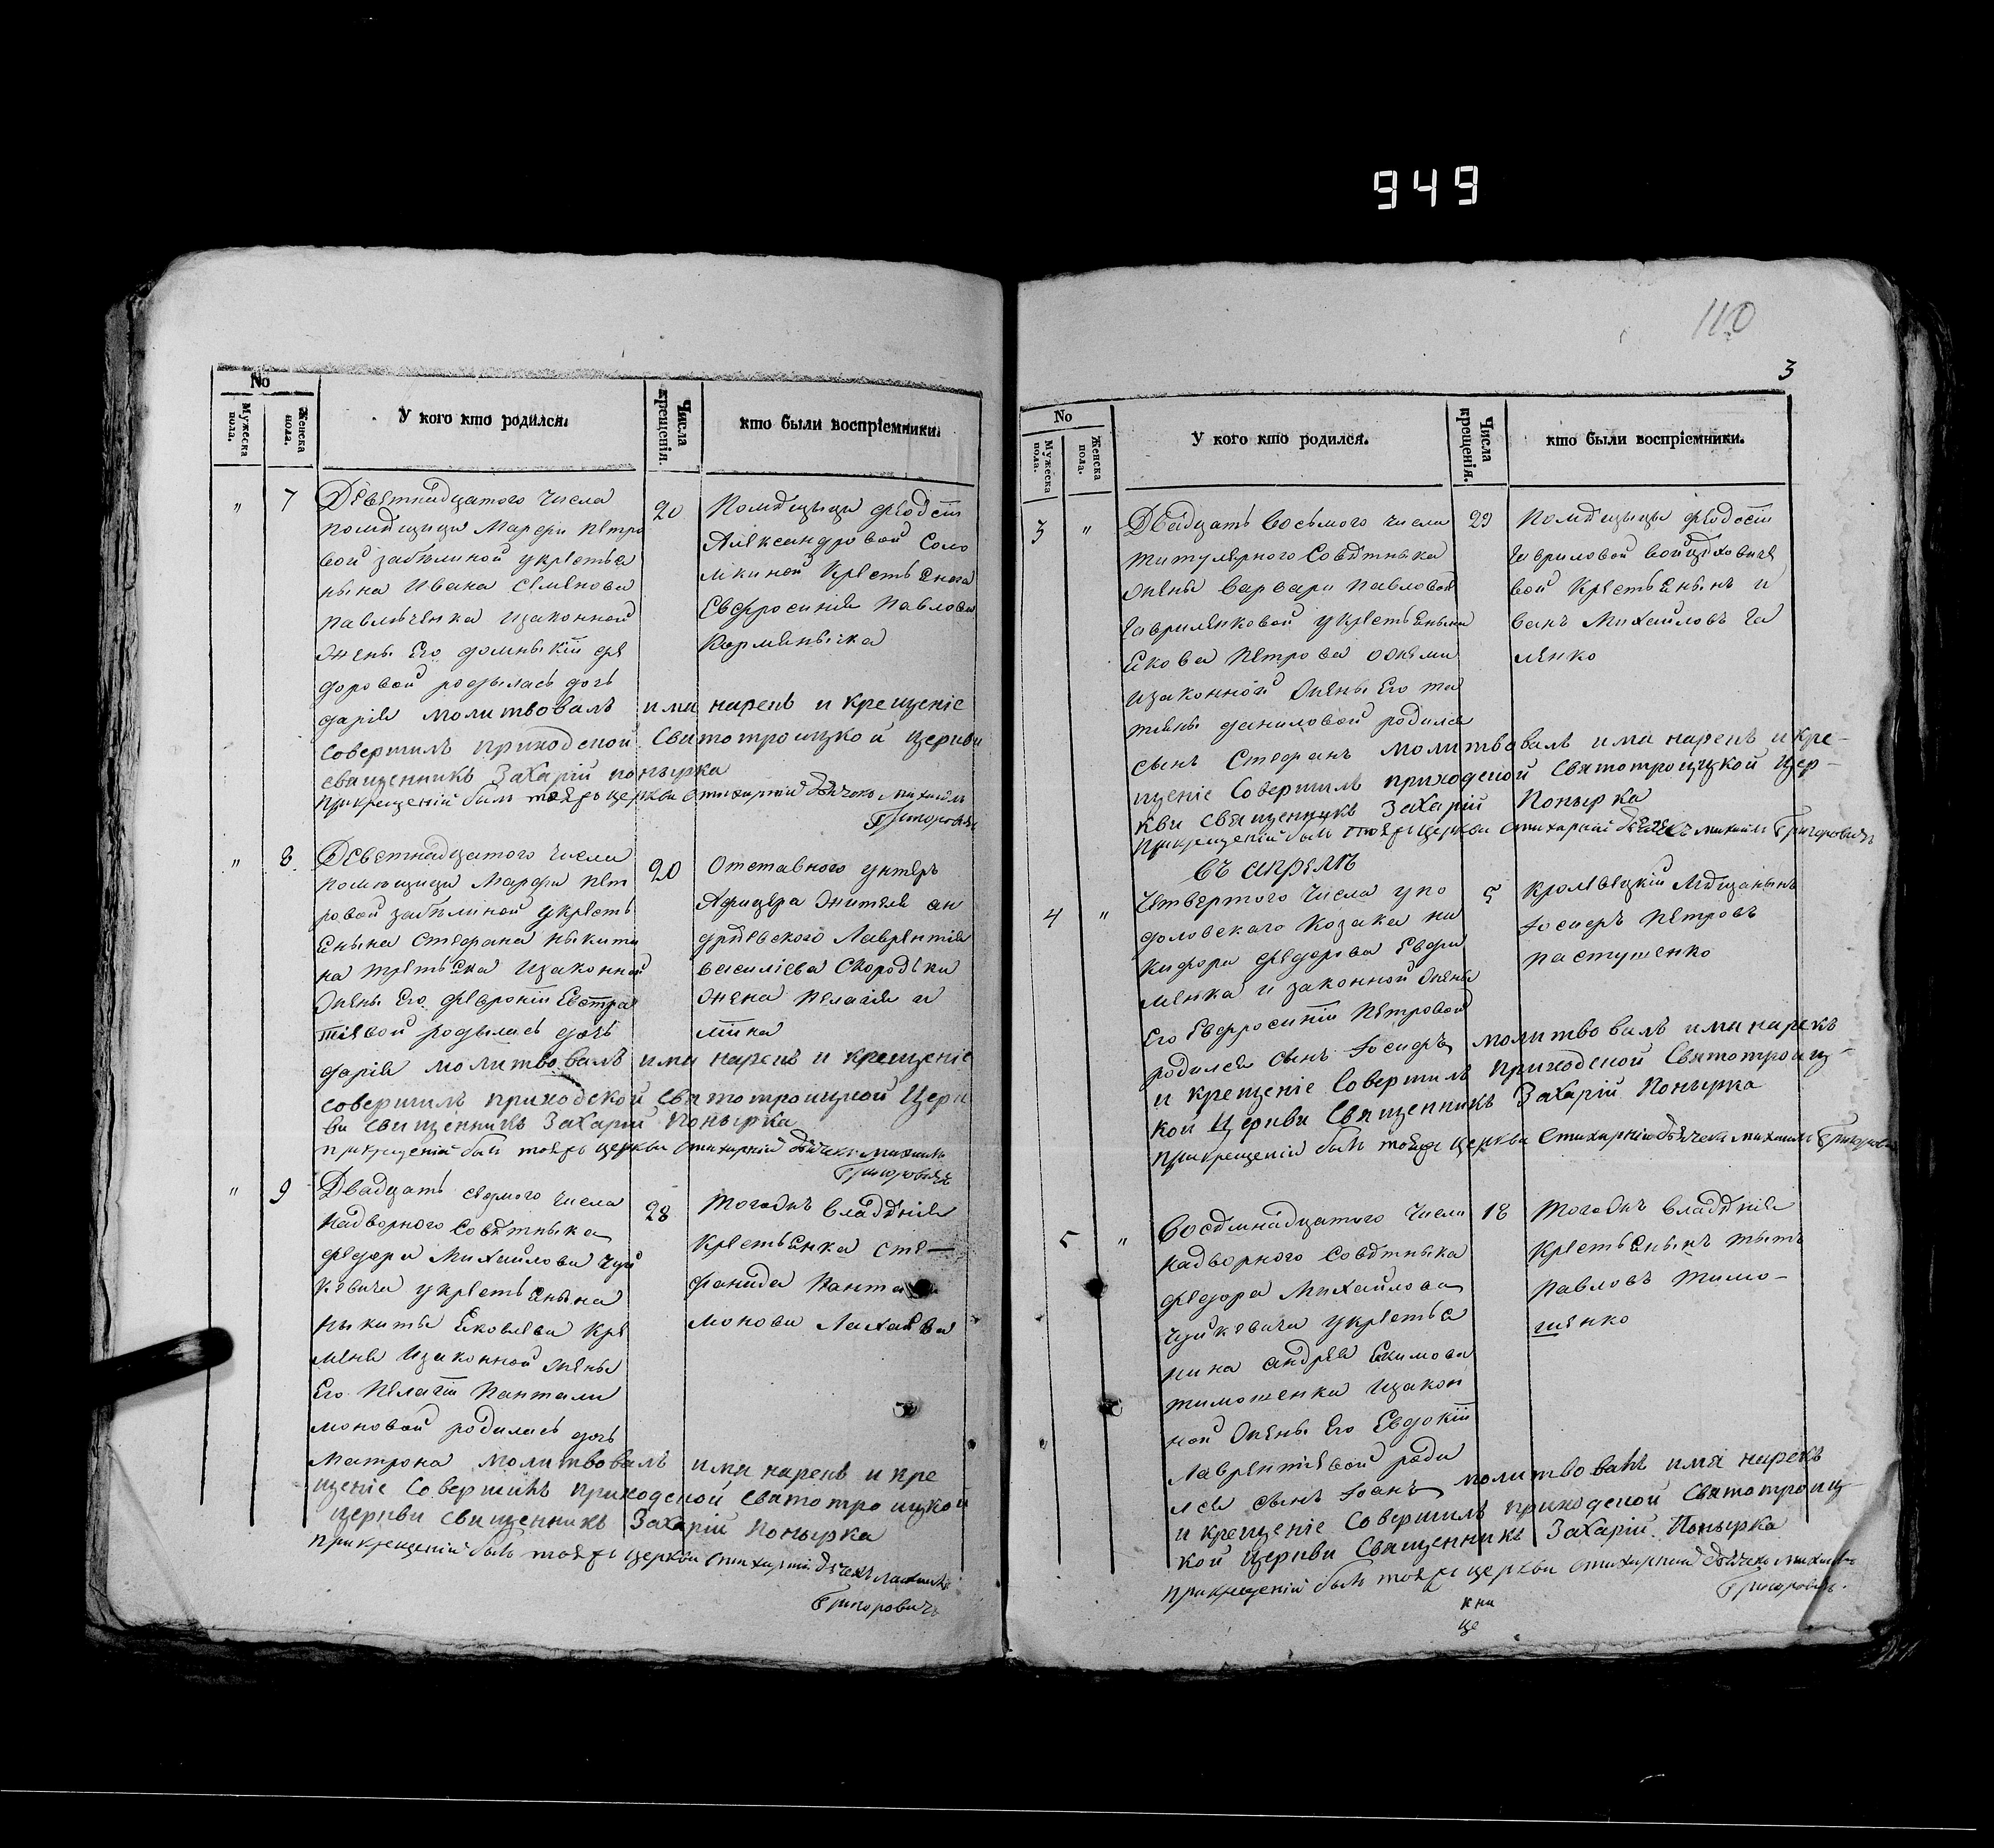 949
110
3
No
Мужеска пола.
Женска пола.
У кого кто родился.
Числа крещенія.
кто были воспріемники.
" 7
Девятнадцатого числа
помѣщици Марфи Петро
вой забѣлиной укрестья
нына Ивана Семенова
Павлюченка изаконной
жены Его домныкіи фе
доровой родзылась дочь
дарія молитвовалъ имя нарекъ и крещеніе
совершилъ приходской Святотроицкой Церкви
священникъ Захарій Понырка
прикрещеніи былъ тояжъ церкви стихарній дьячекъ Михаилъ
Григоровичъ
20
Помѣщици феодосіи
Александровой Соло
мкиной крестьянога
Евфросинія Павлова
" 8
Деветнадцатого числа
помющици Марфи Пет
ровой забѣлиной укресть
янына Стефана ныкити
на изаконной
жены Его февроніи Евстра
тіевой родзылась дочь
дарія молитвовалъ имя нарекъ и крещеніе
совершилъ приходской Святотроицкой Церк
ви священникъ Захарій Понырка
прикрещеніи былъ тояжъ церкви стихарній дьячекъ Михаилъ
Григоровичъ
20
Отставного унтеръ
Афицера жителя ан
дрѣевского Лаврентія
василіева
жена Пелагія и
лііна
" 9
Двадцать седмого числа
Надворного Совѣтныка
федора Михайлова Чуй
кевича укрестьянына
ныкиты Яковлева Кре
меня изаконной жены
Его Пелагіи Пантали
моновой родилась дочь
Матрона молитвовалъ имя нарекъ и кре
щеніе Совершилъ приходской Святотроицкой
церкви Священникъ Захарій Понырка
прикрещеніи былъ тояжъ церкви стихарній дьячекъ Михаилъ
Григоровичъ
28
Тогожъ владѣнія
Крестьянка Сте—
фанида Панта
монова
No
Мужеска пола.
Женска пола.
У кого кто родился.
Числа крещенія.
кто были воспріемники.
3 "
Двадцать восьмого числа
титулярного Совѣтныка
жены Варвари Павловой
Гавриленковой укрестьянына
Якова Петрова
изаконной жены Его та
тяны даниловой родился
сынъ Стефанъ молитвовалъ имя нарекъ икре-
щеніе Совершилъ приходской Святотроицкой Цер-
кви Священникъ Захарій Понырка
прикрещеніи былъ тояжъ церкви стихарній дьячекъ Михаилъ Григоровичъ
29
Помѣщицы феодосіи
Гавриловой
вой крестьянынъ и
ванъ Михайловъ Га
ленко
въ апрелѣ
4 "
Четвертого числа упо
доловскаго козака ни
кифора федорова Евфи
менка и законной жены
Его Евфросиніи Петровой
родился сынъ Іосифъ молитвовалъ имя нарекъ
и крещеніе Совершилъ приходской Святотроиц-
кой Церкви Священникъ Захарій Понырка
прикрещеніи былъ тояжъ церкви стихарній дьячекъ Михаилъ Григоровичъ
5
кролевецкій Мѣщанынъ
Іосифъ Петровъ
пастушенко
5 "
Восѣмнадцатого числа
надворного Совѣтныка
федора Михайлова
Чуйкевича укрестья
нина андрея Якимова
тимошенка изакон
ной жены Его Евдокіи
Лаврентіевой роди
лся сынъ Іоанъ молитвовалъ имя нарекъ
и крещеніе Совершилъ приходской Святотроиц
кой Церкви Священникъ Захарій Понырка
прикрещеніи былъ тояжъ церкви стихарній дьячекъ Михаилъ
Григоровичъ
18
Тогожъ владѣнія
Крестьянынъ тытъ
Павловъ тимо-
шенко
кни
це